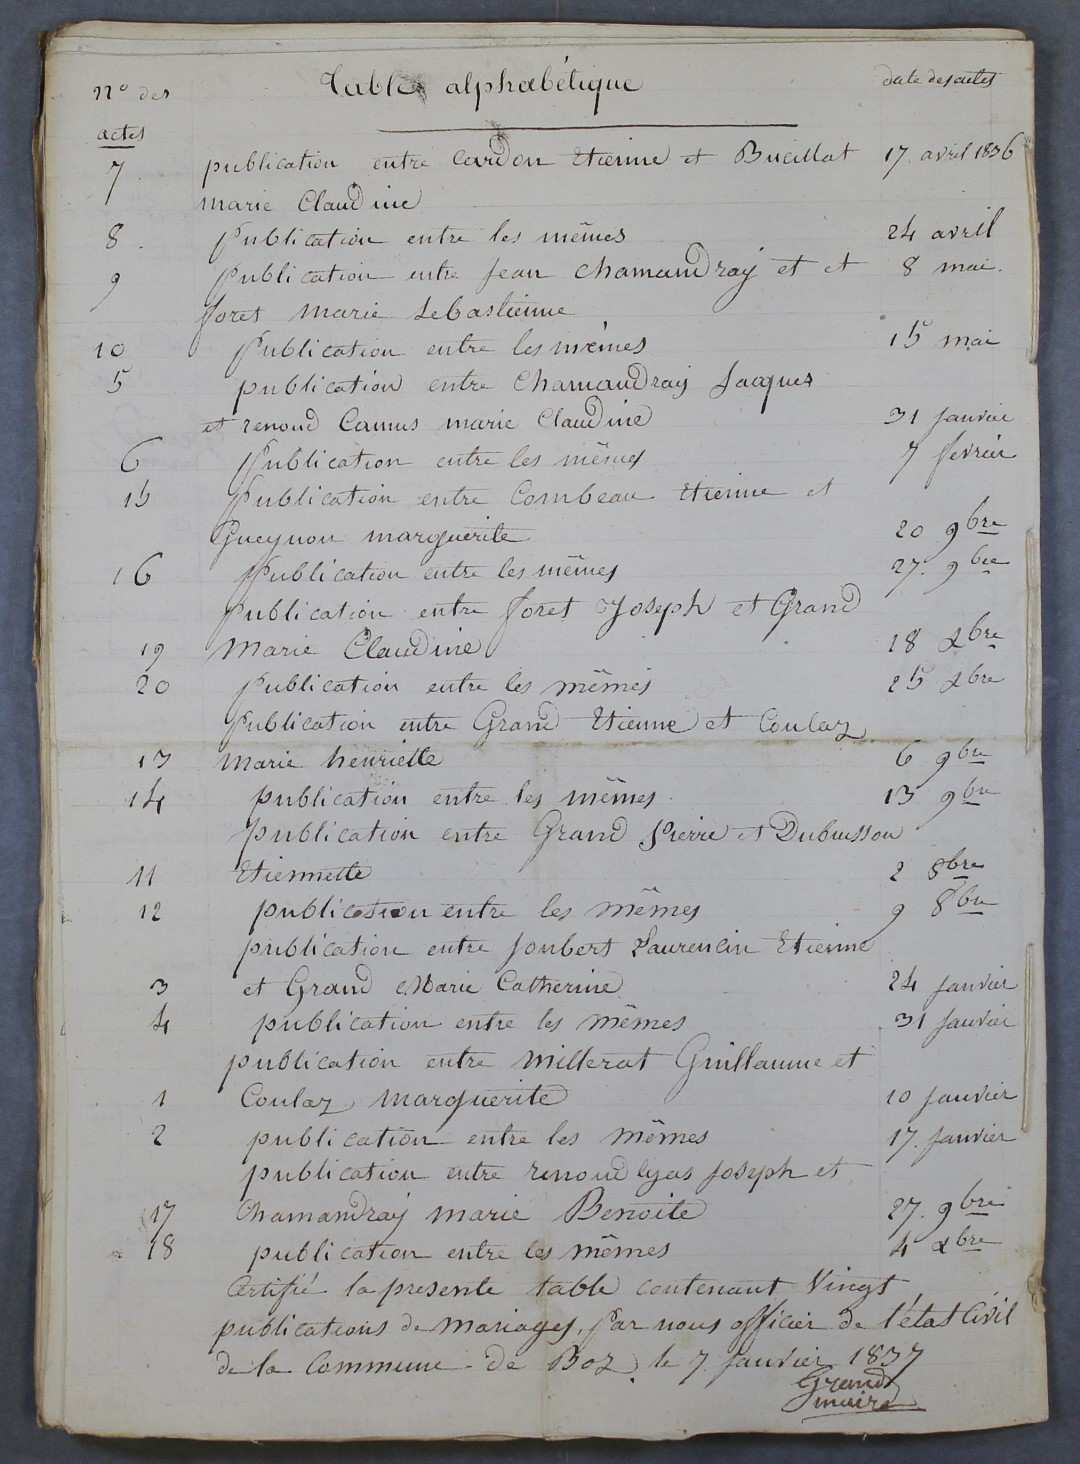 nº des Table alphabétique date des actes
actes
7 publication entre Cardon Etienne et Bucillat 17 avril 1836
marie Claudine
8 publication entre les mêmes 24 avril
9 publication entre Jean Chamandray et et 8 mai.
foret marie Sebastienne
10 publication entre les mêmes 15 mai
5 publication entre Chamandray Jacques
et renoud Camus marie Claudine 31 Janvier
6 publication entre les mêmes 7 fevrier
15 publication entre Combeau Etienne et
Gueynon marguerite 20 9bre
16 publication entre les mêmes 27. 9bre
publication entre foret Joseph et Grand
19 Marie Claudine 18 Xbre
20 publication entre les mêmes 25 Xbre
publication entre Grand Etienne et Coulaz
13 Marie henriette 6 9bre
14 publication entre les mêmes. 13 9bre
publication entre Grand Pierre et Dubuisson
11 Etiennette 2 8bre
12 publication entre les mêmes 9 8bre
publication entre Joubert Laurencin Etienne
3 et Grand Marie Catherine 24 Janvier
4 publication entre les mêmes 31 Janvier
publication entre Millerat Guillaume et
1 Coulaz Marguerite 10 Janvier
2 publication entre les mêmes 17. Janvier
publication entre renoud lyas Joseph et
17 Chamandray Marie Benoite 27. 9bre
18 publication entre les mêmes 4 Xbre
Certifié la presente table contenant Vingt
publications de Mariages, par nous officier de l'état Civil
de la Commune de Boz, le 7 Janvier 1837
Grand
maire